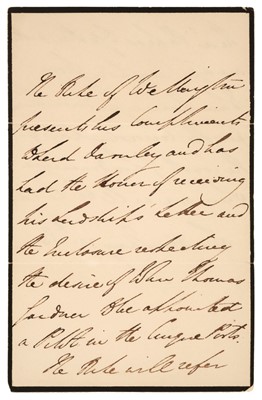 The Duke of Wellington
presents his Compliments
to Lord Darnley and has
had the Honor of receiving
his Lordship's Letter and
the Enclosure respecting
the desire of Thomas
Gardner to be appointed
a Pilot in the Cinque Ports.
The Duke will refer